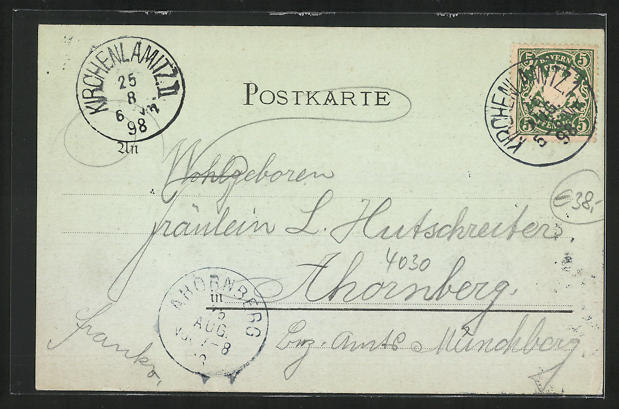 KIRCHENLAMITZ II
25
8
98
POSTKARTE
BAYERN
5 5
5 5
KIRCHENLAMITZ II
98
An
Wohlgeboren
€38,-
Fräulein L. Hutschreiter
4030
in Ahornberg.
AHORNBERG
AUG.
7-8
franko.
Bez. Amts Münchberg